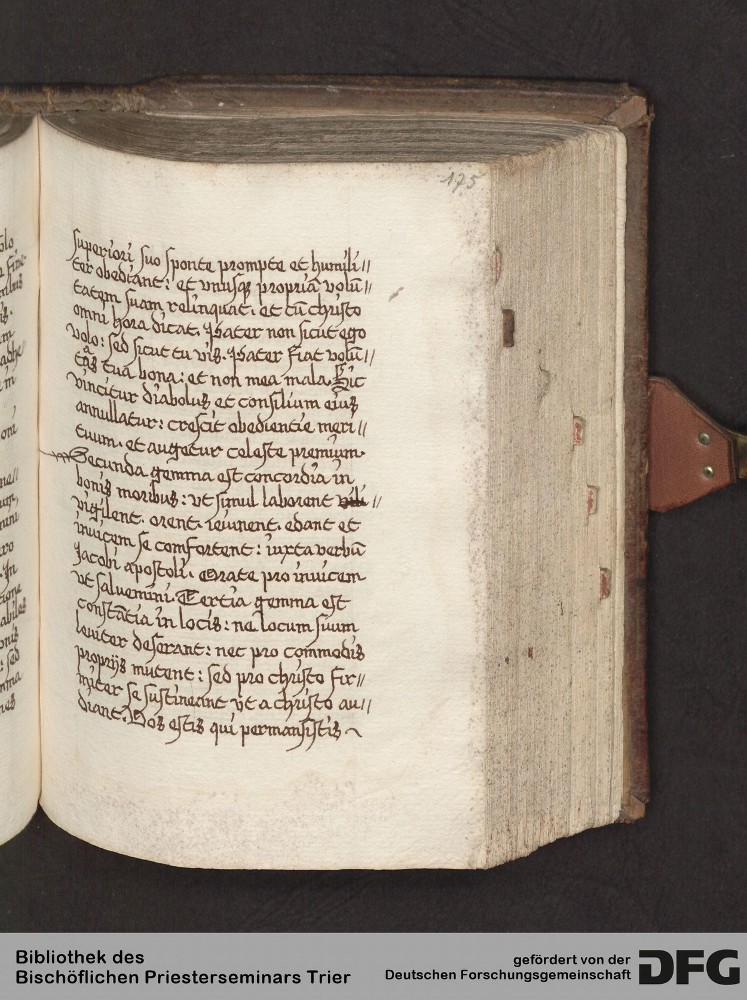 175
superiori suo sponte prompte et humili//
ter obediant: et vnusq̨ propriā volū//
tatem suam relinquat. et cū christo
omni hora dicat. Pater non sicut ego
volo: sed sicut tu vis. Pater fiat volū//
tas tua bona: et non mea mala. Sic
vincitur diabolus et consilium eius
annullatur: crescit obedientie meri//
tuum. et augetur celeste premium.
Secunda gemma est concordia in
bonis moribus: vt simul laborent //
vigilent. orent. ieiunent. edant et
inuicem se comfortent: iuxta verbū
Jacobi apostoli. Orate pro inuicem
vt saluemini. Tertia gemma est
constātia in locis: ne locum suum
leuiter deserant: nec pro commodis
proprijs mutent: sed pro christo fir-
miter se sustineant vt a christo au//
diant. Vos estis qui permansistis
Bibliothek des
Bischöflichen Priesterseminars Trier
gefördert von der
Deutschen Forschungsgemeinschaft DFG